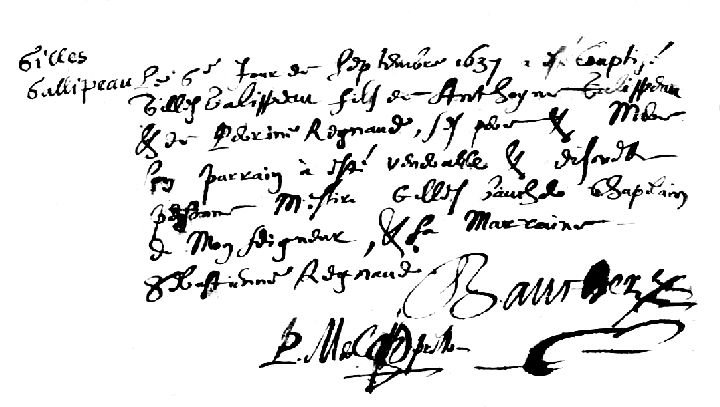 Gilles
Gallipeau
Le 6e Jour de Septembre 1637 a esté baptisé
Gilles Galippeau fils de Anthoyne Galippeau
& de Perrine Regnaud, ses pere & Mere
Son parrain à esté venerable & discrette
personne Messire Gilles Chaplain
de Monseigneur, & sa Marraine
Sebastienne Regnaud